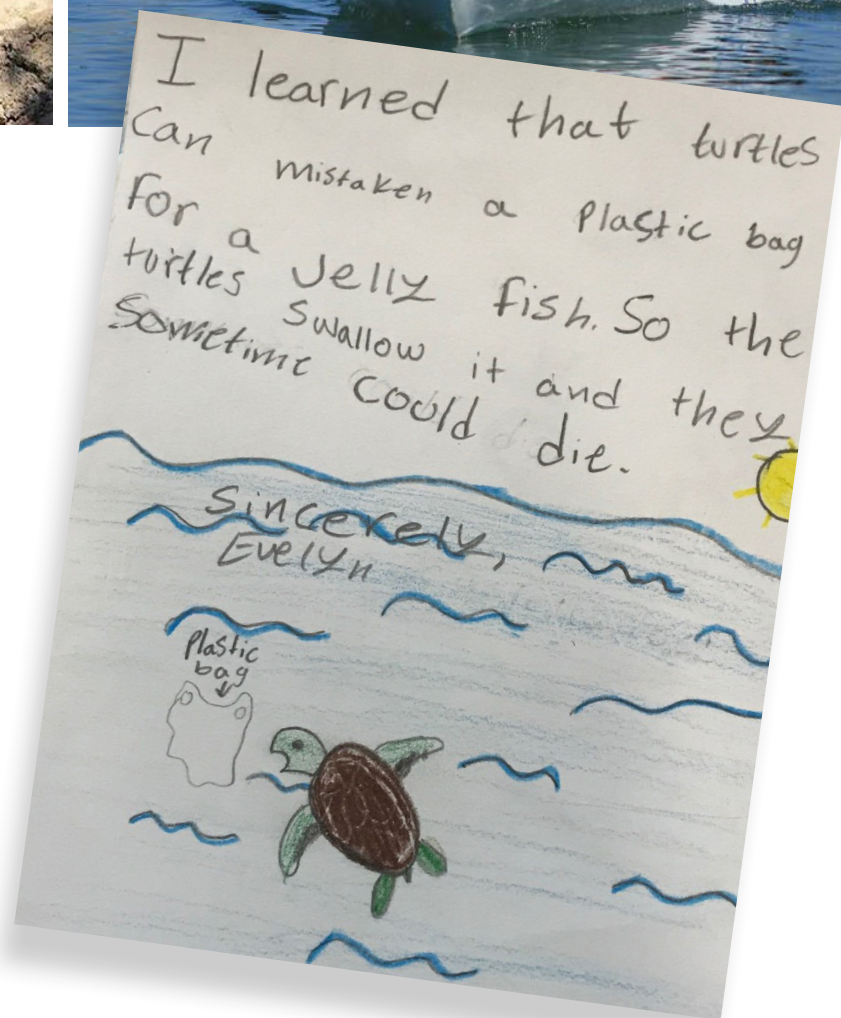 I learned that turtles
can mistaken a Plastic bag
for a Jelly fish. So the
turtles Swallow it and they
Sometime could die.
Sincerely,
Evelyn
Plastic
bag